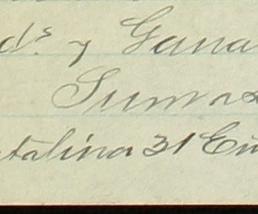 ds. y Gana
Suma
talina 31 En